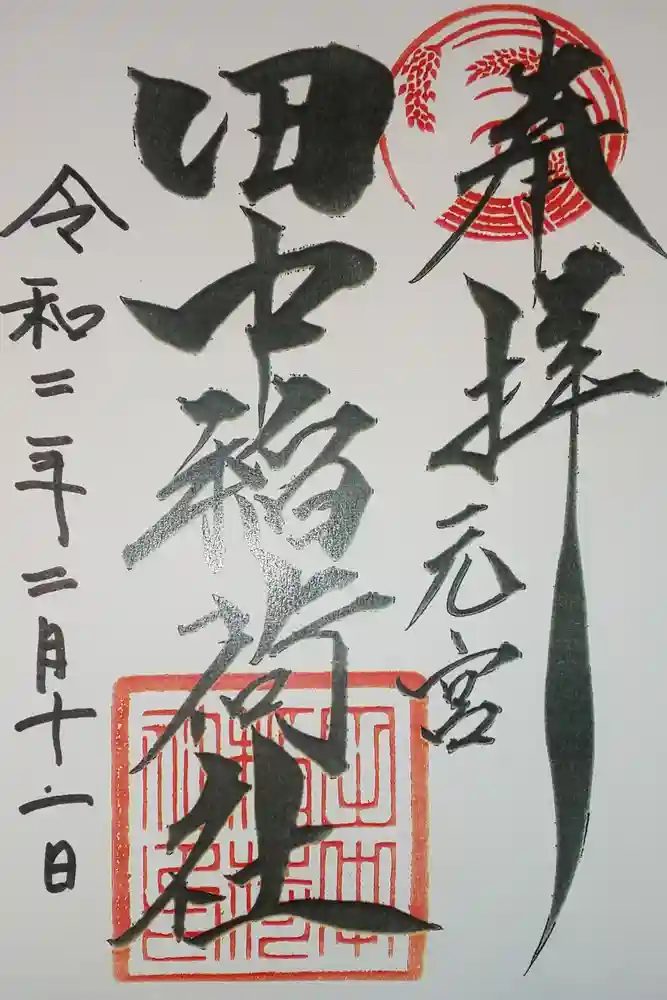 奉拝
元宮
田中稲荷社
令和二年二月十一日